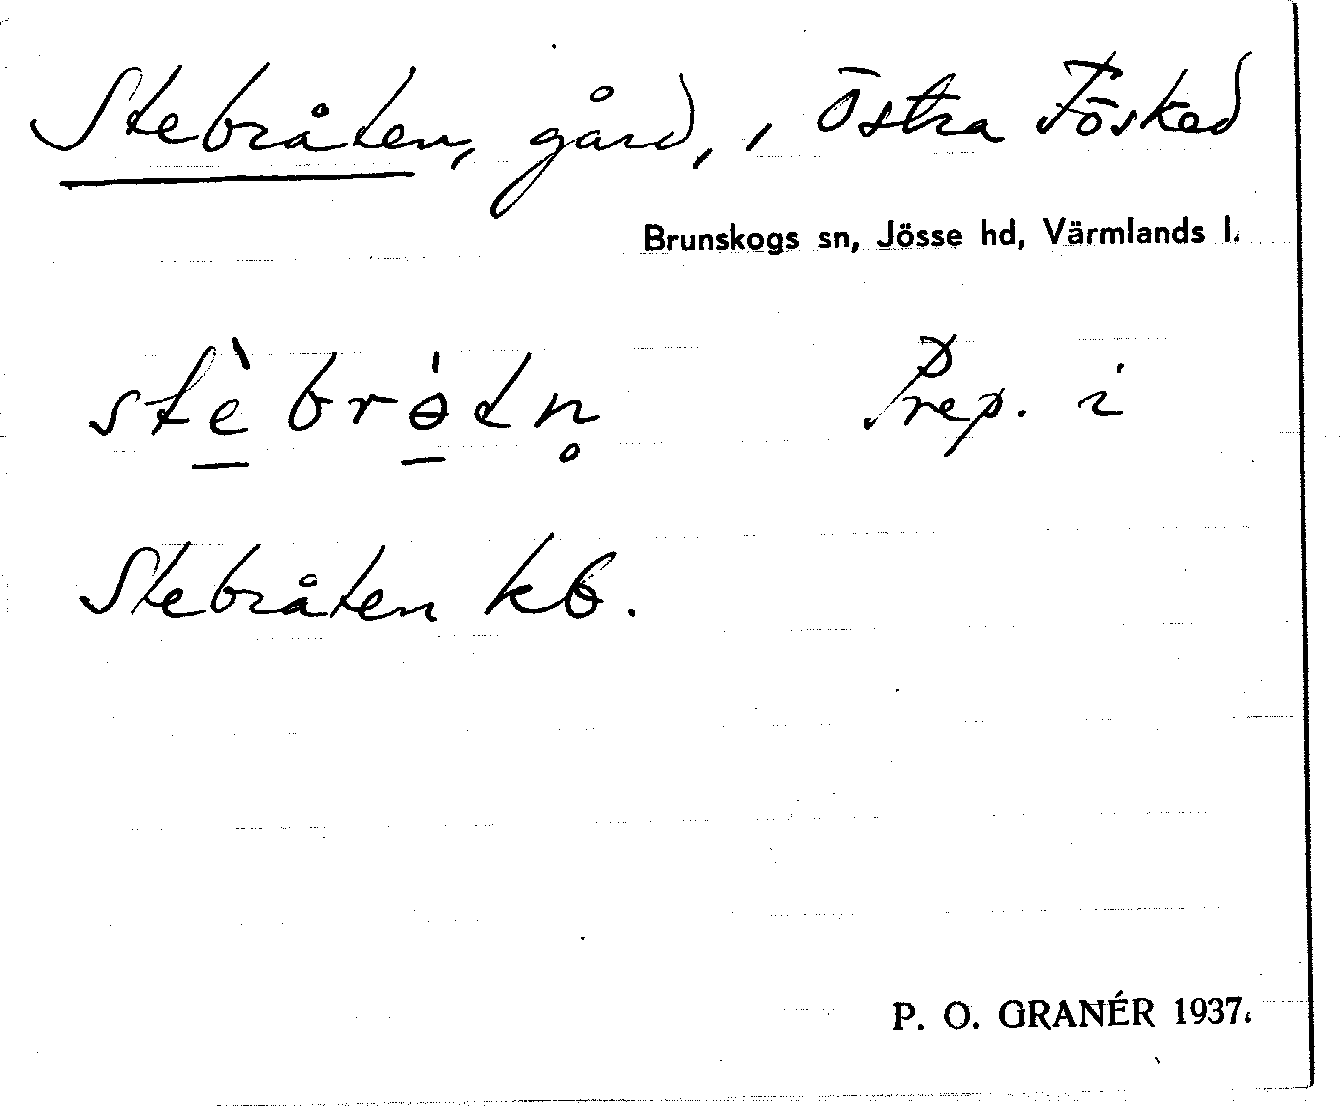 Stebråten, gård, i Östra Fösked
Brunskogs sn, Jösse hd, Värmlands l.
stè̠brɵ̠́tn̥ Prep. i
Stebråten kb.
P. O. GRANÉR 1937.